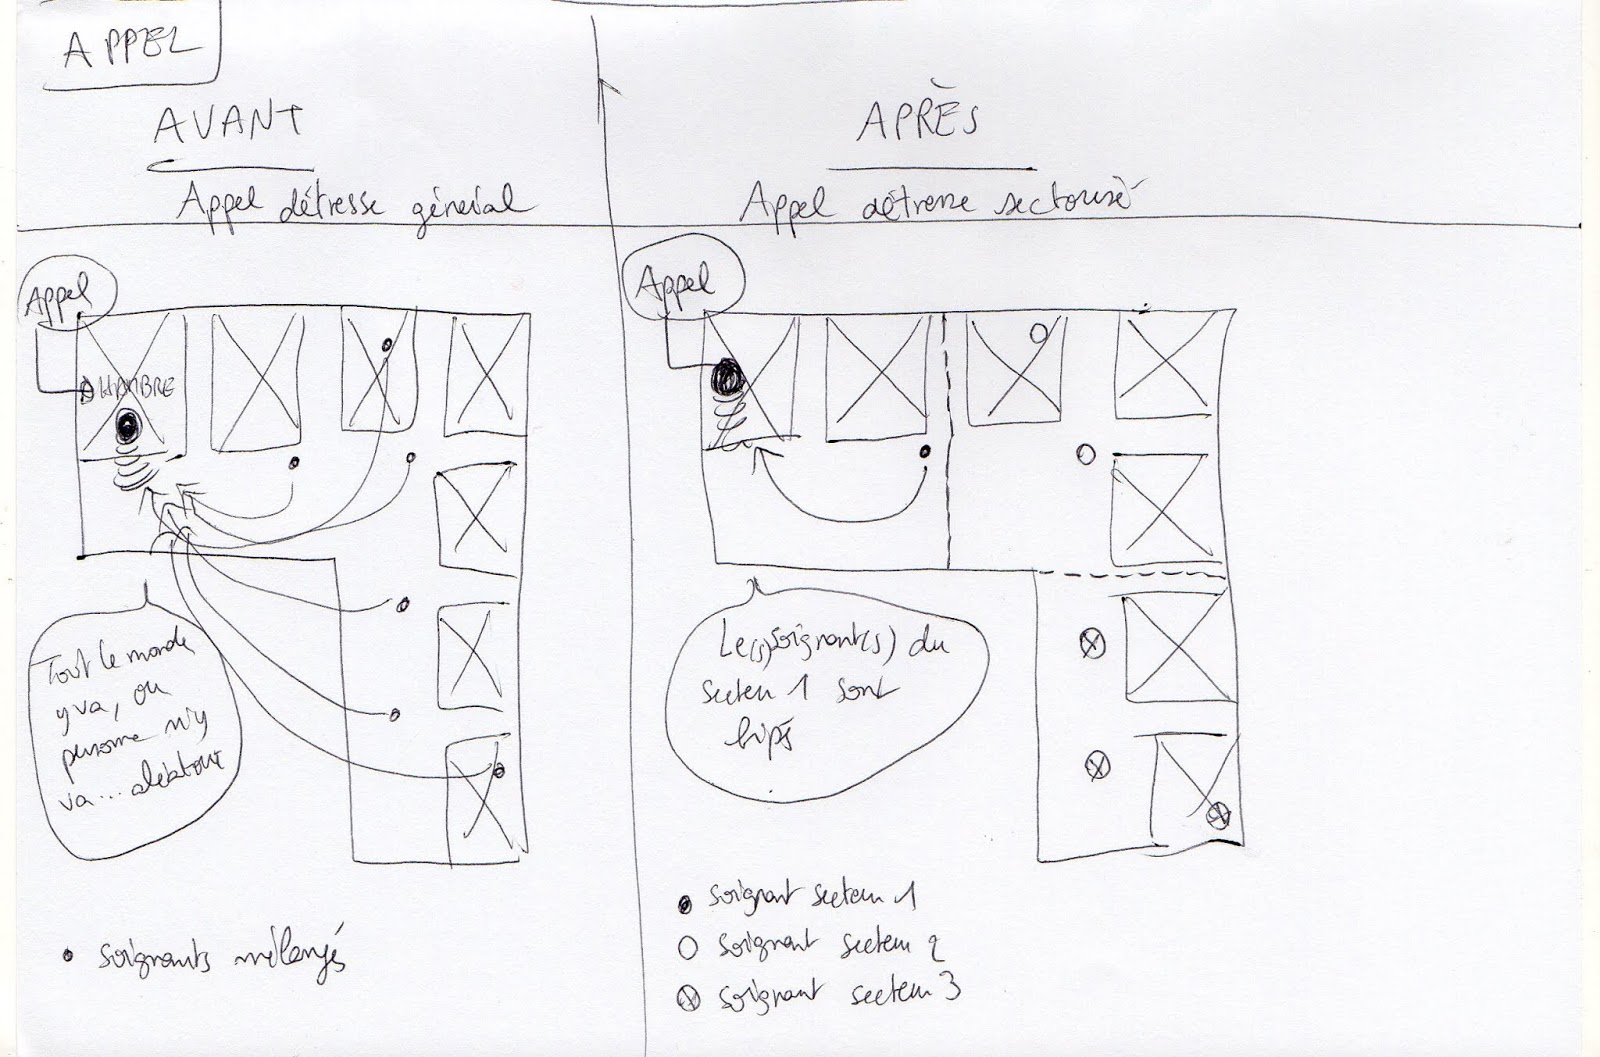 APPEL
AVANT
Appel détresse général
Appel
CHAMBRE
Tout le monde
y va, ou
personne n'y
va... aléatoire
• soignants mélangés
APRÈS
Appel détresse sectorisé
Appel
Le(s) soignant(s) du
secteur 1 sont
bipés
soignant secteur 1
soignant secteur 2
soignant secteur 3